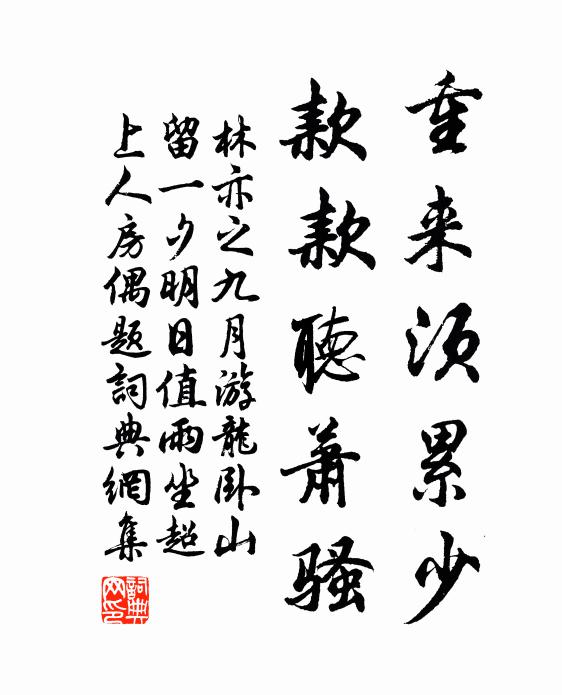 重来须累少
款款聽蕭騷
林亦之九月游龍卧山
留一夕明日值雨坐超
上人房偶題詞典網集
詞典網印